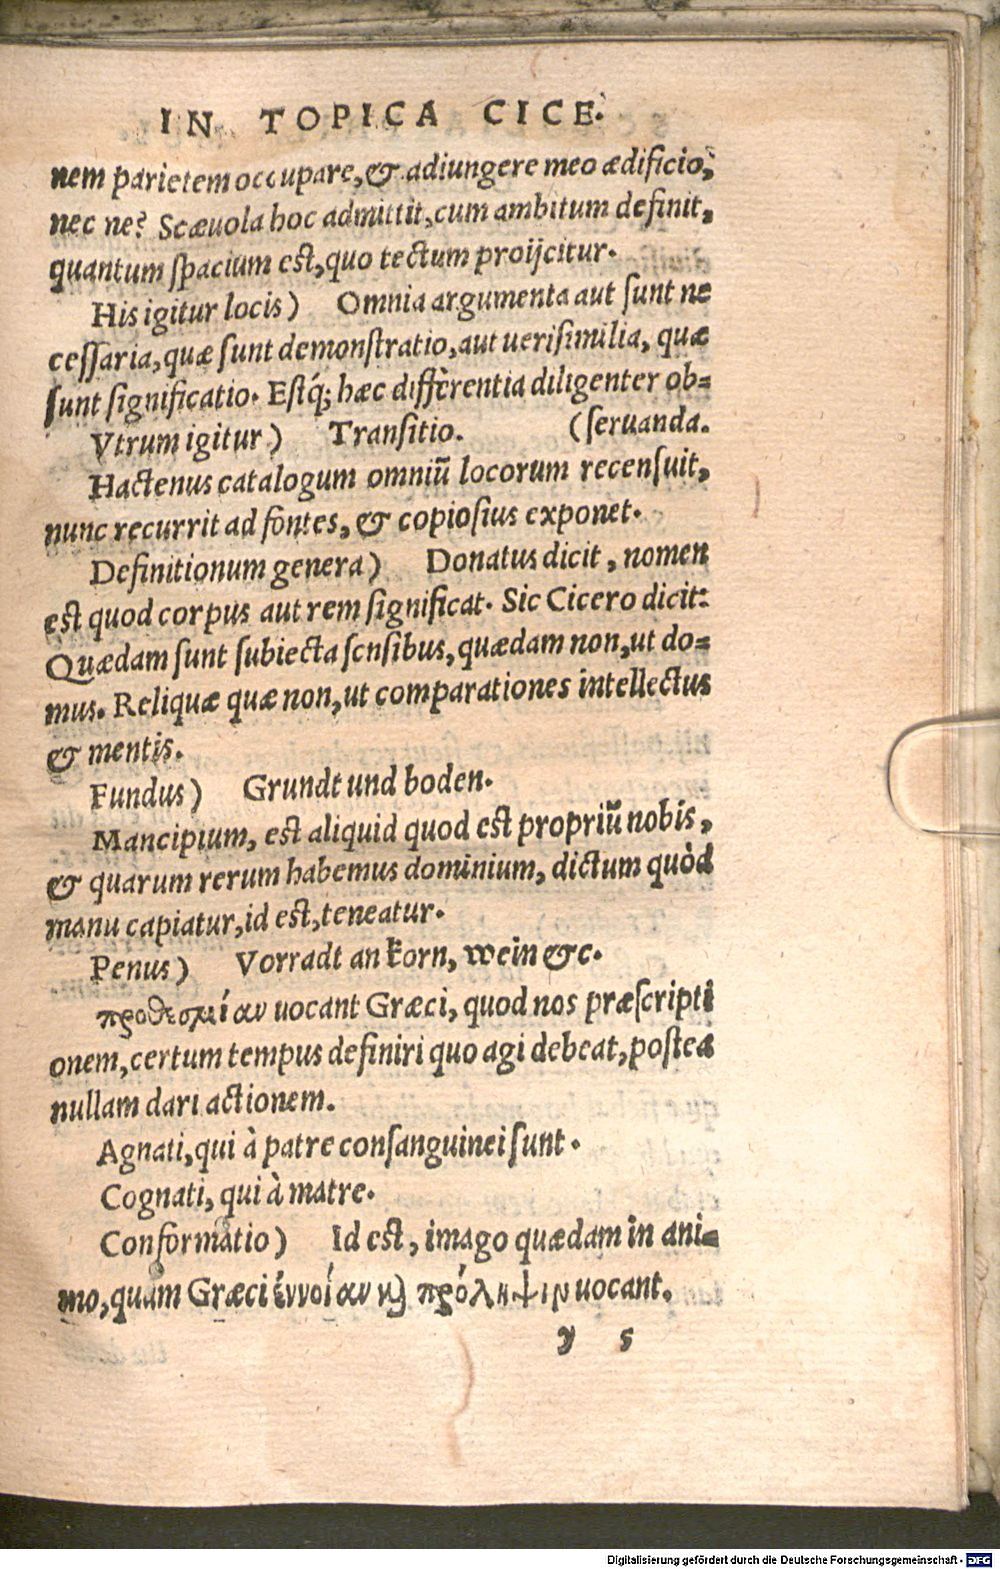 IN TOPICA CICE.
nem parietem occupare, & adiungere meo ædificio,
nec ne? Scæuola hoc admittit, cum ambitum definit,
quantum ſpacium est, quo tectum proijcitur.
His igitur locis) Omnia argumenta aut ſunt ne
ceſſaria, quæ ſunt demonſtratio, aut ueriſimilia, quæ
ſunt ſignificatio. Eſtq́; hæc differentia diligenter ob-
Vtrum igitur) Tranſitio. (ſeruanda.
Hactenus catalogum omniū locorum recenſuit,
nunc recurrit ad fontes, & copioſius exponet.
Definitionum genera) Donatus dicit, nomen
eſt quod corpus aut rem ſignificat. Sic Cicero dicit:
Quædam ſunt ſubiecta ſenſibus, quædam non, ut do-
mus. Reliquæ quæ non, ut comparationes intellectus
& mentis.
Fundus) Grundt und boden.
Mancipium, eſt aliquid quod eſt propriū nobis,
& quarum rerum habemus dominium, dictum quòd
manu capiatur, id eſt, teneatur.
Penus) Vorradt an korn, wein &c.
προθεσμίαν uocant Græci, quod nos præſcripti
onem, certum tempus definiri quo agi debeat, poſtea
nullam dari actionem.
Agnati, qui à patre conſanguinei ſunt.
Cognati, qui à matre.
Conformatio) Id eſt, imago quædam in ani-
mo, quam Græci ἐννοίαν ϗ πρόληψιν uocant.
y 5
Digitalisierung gefördert durch die Deutsche Forschungsgemeinschaft - DFG